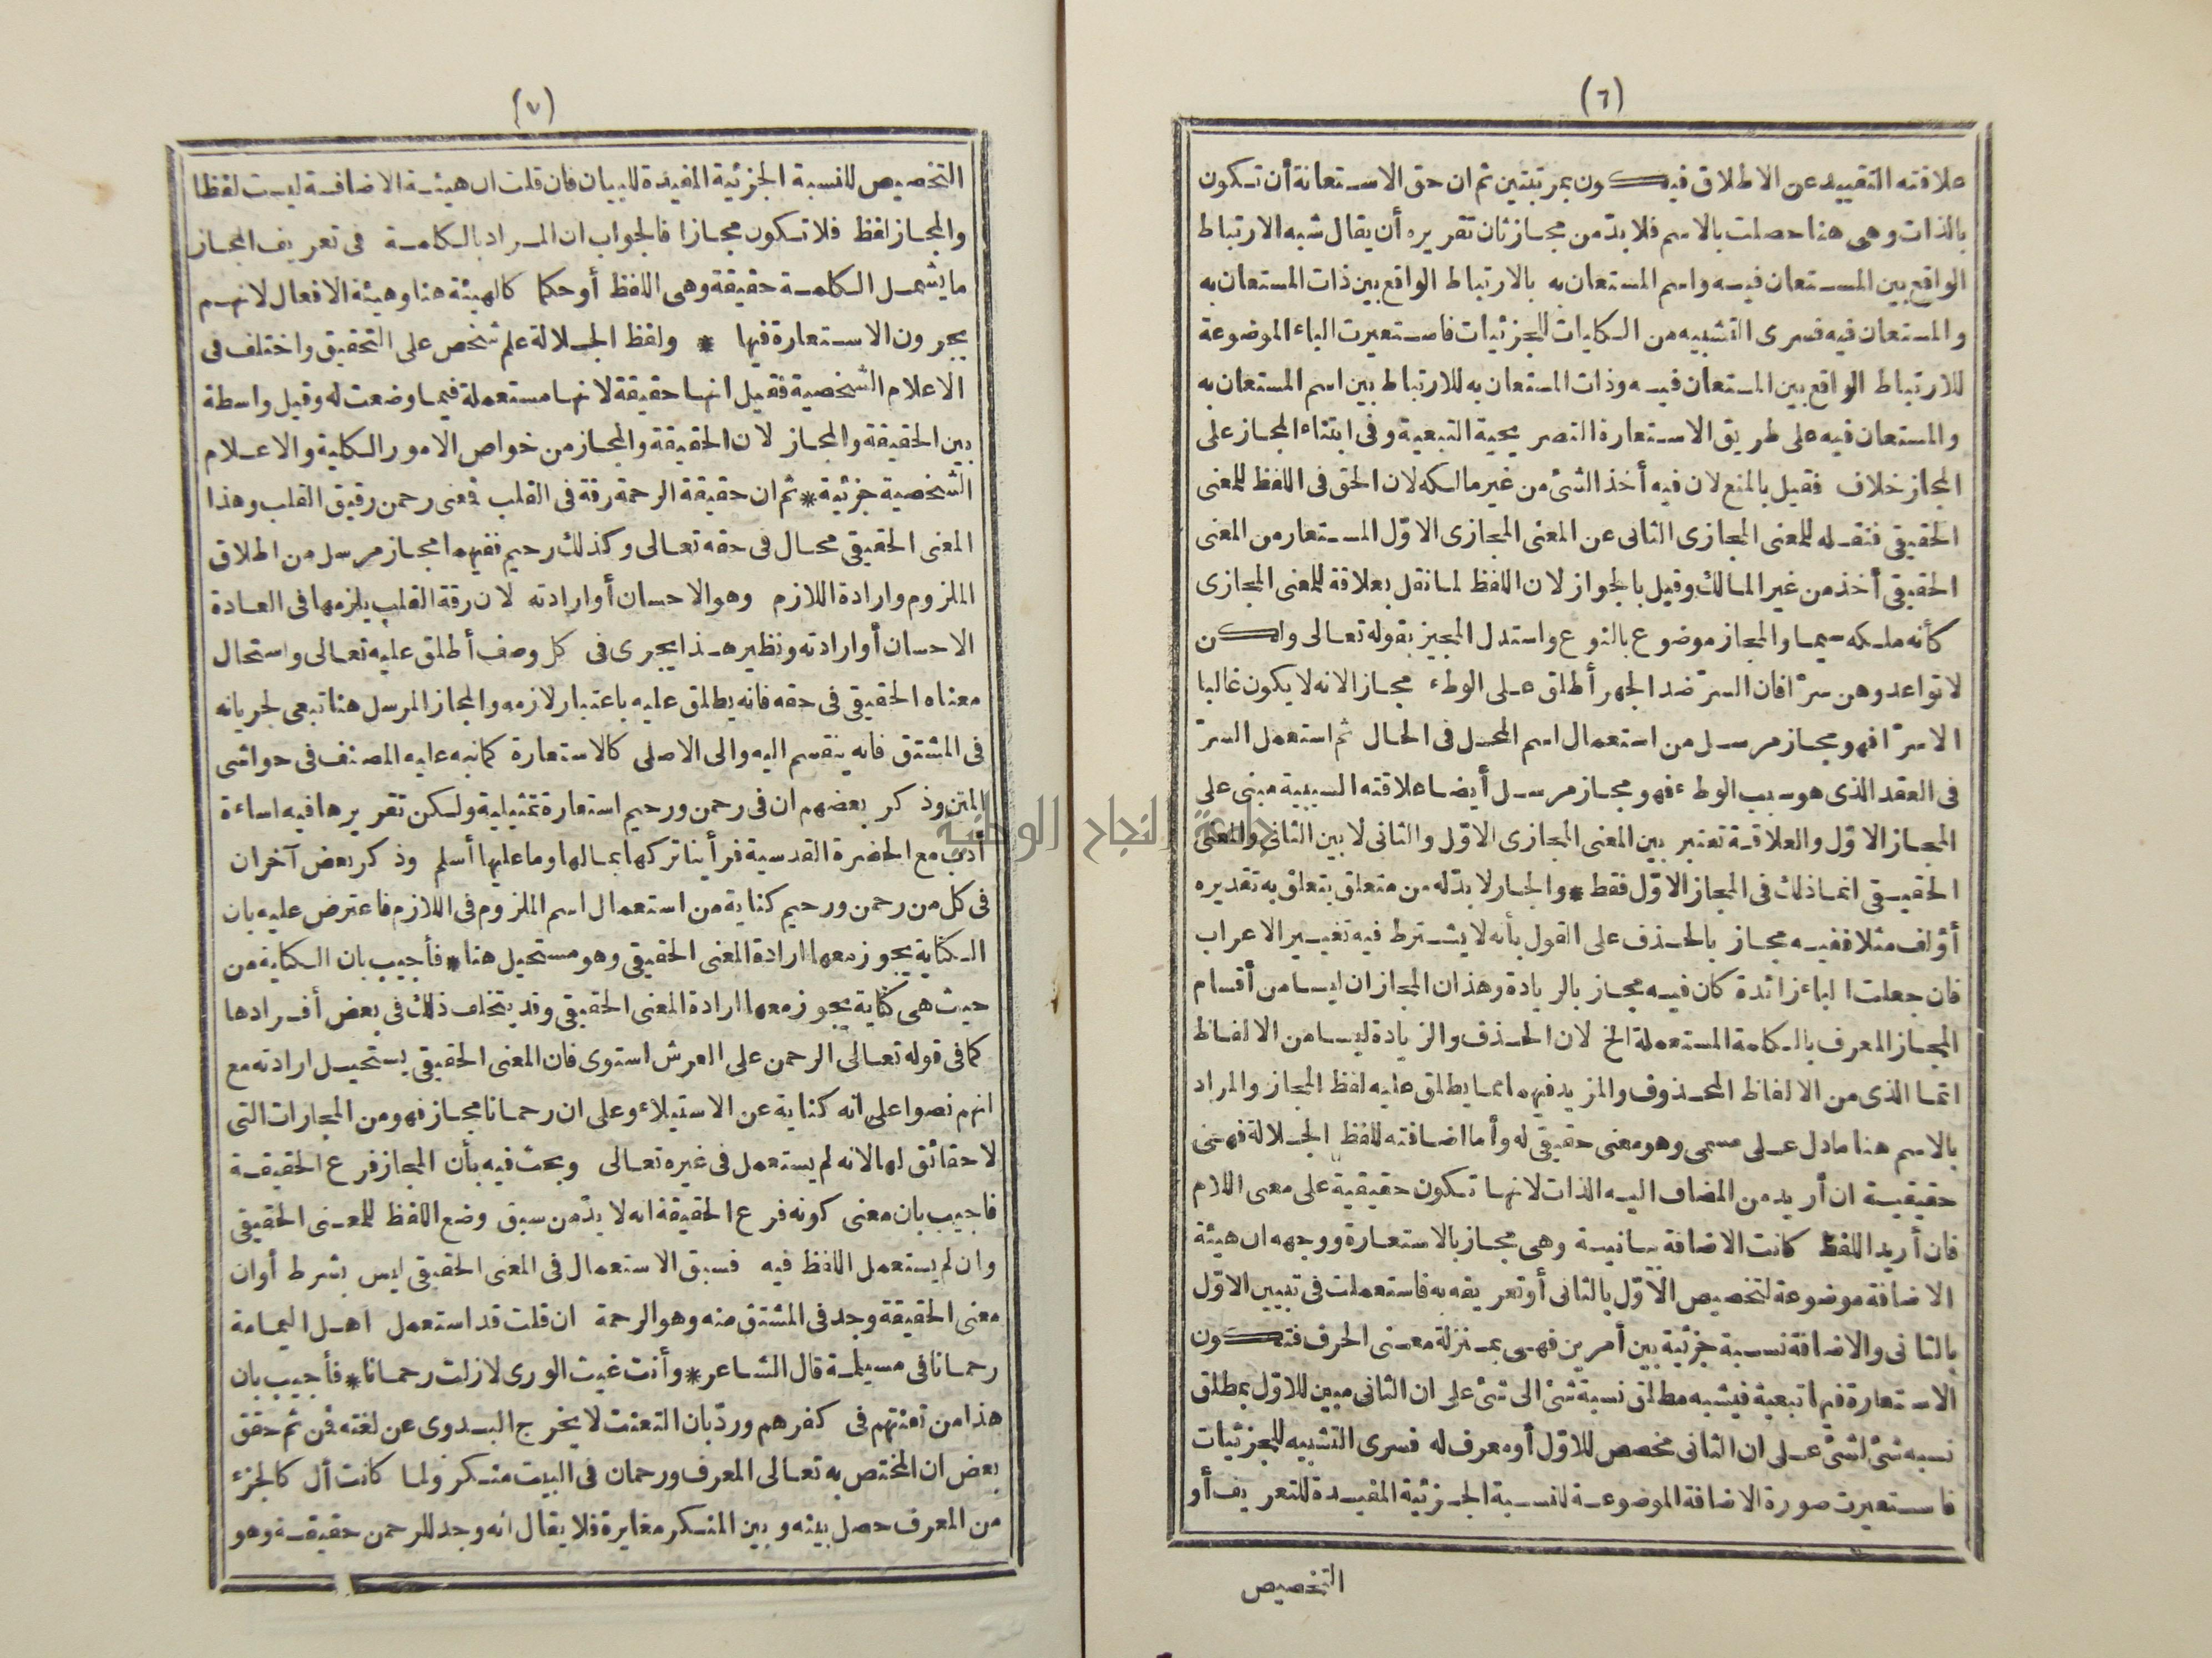 (٦)
علاقته التقييد عن الاطلاق فيكون بمرتبتين ثم ان حق الاستعانة أن تكون
بالذات وهى هنا حصلت بالاسم فلا بدّ من مجاز ثان تقريره أن يقال شبه الارتباط
الواقع بين المستعان فيه واسم المستعان به بالارتباط الواقع بين ذات المستعان به
والمستعان فيه فسرى التشبيه من الكليات للجزئيات فاستعيرت الباء الموضوعة
للارتباط الواقع بين المستعان فيه وذات المستعان به للارتباط بين اسم المستعان به
والمستعان فيه على طريق الاستعارة التصريحية التبعية وفى ابتناء المجاز على
المجاز خلاف فقيل بالمنع لان فيه أخذ الشئ من غير مالكه لان الحق فى اللفظ للمعنى
الحقيقى فنقله للمعنى المجازى الثانى عن المعنى المجازى الاوّل المستعار من المعنى
الحقيقى أخذ من غير المالك وقيل بالجواز لان اللفظ لما نقل بعلاقة للمعنى المجازى
كأنه ملكه سيما والمجاز موضوع بالنوع واستدل المجيز بقوله تعالى ولكن
لا تواعدوهن سرّا فان السرّ ضد الجهر أطلق على الوطء مجازا لانه لا يكون غالبا
الا سرّا فهو مجاز مرسل من استعمال اسم المحل فى الحال ثم استعمل السرّ
فى العقد الذى هو سبب الوطء فهو مجاز مرسل أيضا علاقته السببية مبنى على
المجاز الاوّل والعلاقة تعتبر بين المعنى المجازى الاوّل والثانى لا بين الثانى والمعنى
الحقيقى انما ذلك فى المجاز الاوّل فقط * والجار لا بدّ له من متعلق يتعلق به تقديره
أؤلف مثلا ففيه مجاز بالحذف على القول بأنه لا يشترط فيه تغيير الاعراب
فان جعلت الباء زائدة كان فيه مجاز بالزيادة وهذان المجازان ليسا من أقسام
المجاز المعرف بالكلمة المستعملة الخ لان الحذف والزيادة ليسا من الالفاظ
انما الذى من الالفاظ المحذوف والمزيد فيهما يطلق عليه لفظ المجاز والمراد
بالاسم هنا مادل على مسمى وهو معنى حقيقى له وأما اضافته للفظ الجلالة فهى
حقيقية ان أريد من المضاف اليه الذات لانها تكون حقيقية على معنى اللام
فان أريد اللفظ كانت الاضافة بيانية وهى مجاز بالاستعارة ووجهه ان هيئة
الاضافة موضوعة لتخصيص الاوّل بالثانى أو تعريفه به فاستعملت فى تبيين الاوّل
بالثانى والاضافة نسبة جزئية بين أمرين فهى بمنزلة معنى الحرف فتكون
الاستعارة فيها تبعية فيشبه مطلق نسبة شئ الى شئ على ان الثانى مبين للاوّل بمطلق
نسبه شئ لشئ على ان الثانى مخصص للاوّل أو معرف له فسرى التشبيه للجزئيات
فاستعيرت صورة الاضافة الموضوعة لنسبة الجزئية المفيدة للتعريف أو
التخصيص
(٧)
التخصيص للنسبة الجزئية المفيدة للبيان فان قلت ان هيئة الاضافة ليست لفظا
والمجاز لفظ فلا تكون مجازا فالجواب ان المراد بالكلمة فى تعريف المجاز
ما يشمل الكلمة حقيقة وهى اللفظ أو حكما كالهيئة هنا وهيئة الافعال لانهم
يجرون الاستعارة فيها * ولفظ الجلالة علم شخص على التحقيق واختلف فى
الاعلام الشخصية فقيل انها حقيقة لانها مستعملة فيما وضعت له وقيل واسطة
بين الحقيقة والمجاز لان الحقيقة والمجاز من خواص الامور الكلية والاعلام
الشخصية جزئية * ثم ان حقيقة الرحمة رقة فى القلب فمعنى رحمن رقيق القلب وهذا
المعنى الحقيقى محال فى حقه تعالى وكذلك رحيم ففيهما مجاز مرسل من اطلاق
الملزوم وارادة اللازم وهو الاحسان أو ارادته لان رقة القلب يلزمها فى العادة
الاحسان أو ارادته ونظير هذا يجرى فى كل وصف أطلق عليه تعالى واستحال
معناه الحقيقى فى حقه فانه يطلق عليه باعتبار لازمه والمجاز المرسل هنا تبعى لجريانه
فى المشتق فانه ينقسم اليه والى الاصلى كالاستعارة كما نبه عليه المصنف فى حواشى
المتن وذكر بعضهم ان فى رحمن ورحيم استعارة تمثيلية ولكن تقريرها فيه اساءة
أدب مع الحضرة القدسية فرأينا تركها بمالها وما عليها أسلم وذكر بعض آخر ان
فى كل من رحمن ورحيم كناية من استعمال اسم الملزوم فى اللازم فاعترض عليه بان
الكناية يجوز معها ارادة المعنى الحقيقى وهو مستحيل هنا * فأجيب بان الكناية من
حيث هى كناية يجوز معها ارادة المعنى الحقيقى وقد يتخلف ذلك فى بعض أفرادها
كما فى قوله تعالى الرحمن على العرش استوى فان المعنى الحقيقى يستحيل ارادته مع
انهم نصوا على انه كناية عن الاستيلاء وعلى ان رحمانا مجاز فهو من المجازات التى
لا حقائق لها لانه لم يستعمل فى غيره تعالى وبحث فيه بأن المجاز فرع الحقيقة
فاجيب بان معنى كونه فرع الحقيقة انه لا بدّ من سبق وضع اللفظ للمعنى الحقيقى
وان لم يستعمل اللفظ فيه فسبق الاستعمال فى المعنى الحقيقى ليس بشرط أو ان
معنى الحقيقة وجد فى المشتق منه وهو الرحمة ان قلت قد استعمل اهل اليمامة
رحمانا فى مسيلمة قال الشاعر * وأنت غيث الورى لا زلت رحمانا * فأجيب بان
هذا من تعنتهم فى كفرهم وردّ بان التعنت لا يخرج البدوى عن لغته فمن ثم حقق
بعض ان المختص به تعالى المعرف ورحمان فى البيت منكر ولما كانت أل كالجزء
من المعرف حصل بينه وبين المنكر مغايرة فلا يقال انه وجد للرحمن حقيقة وهو
جامعة النجاح الوطنية